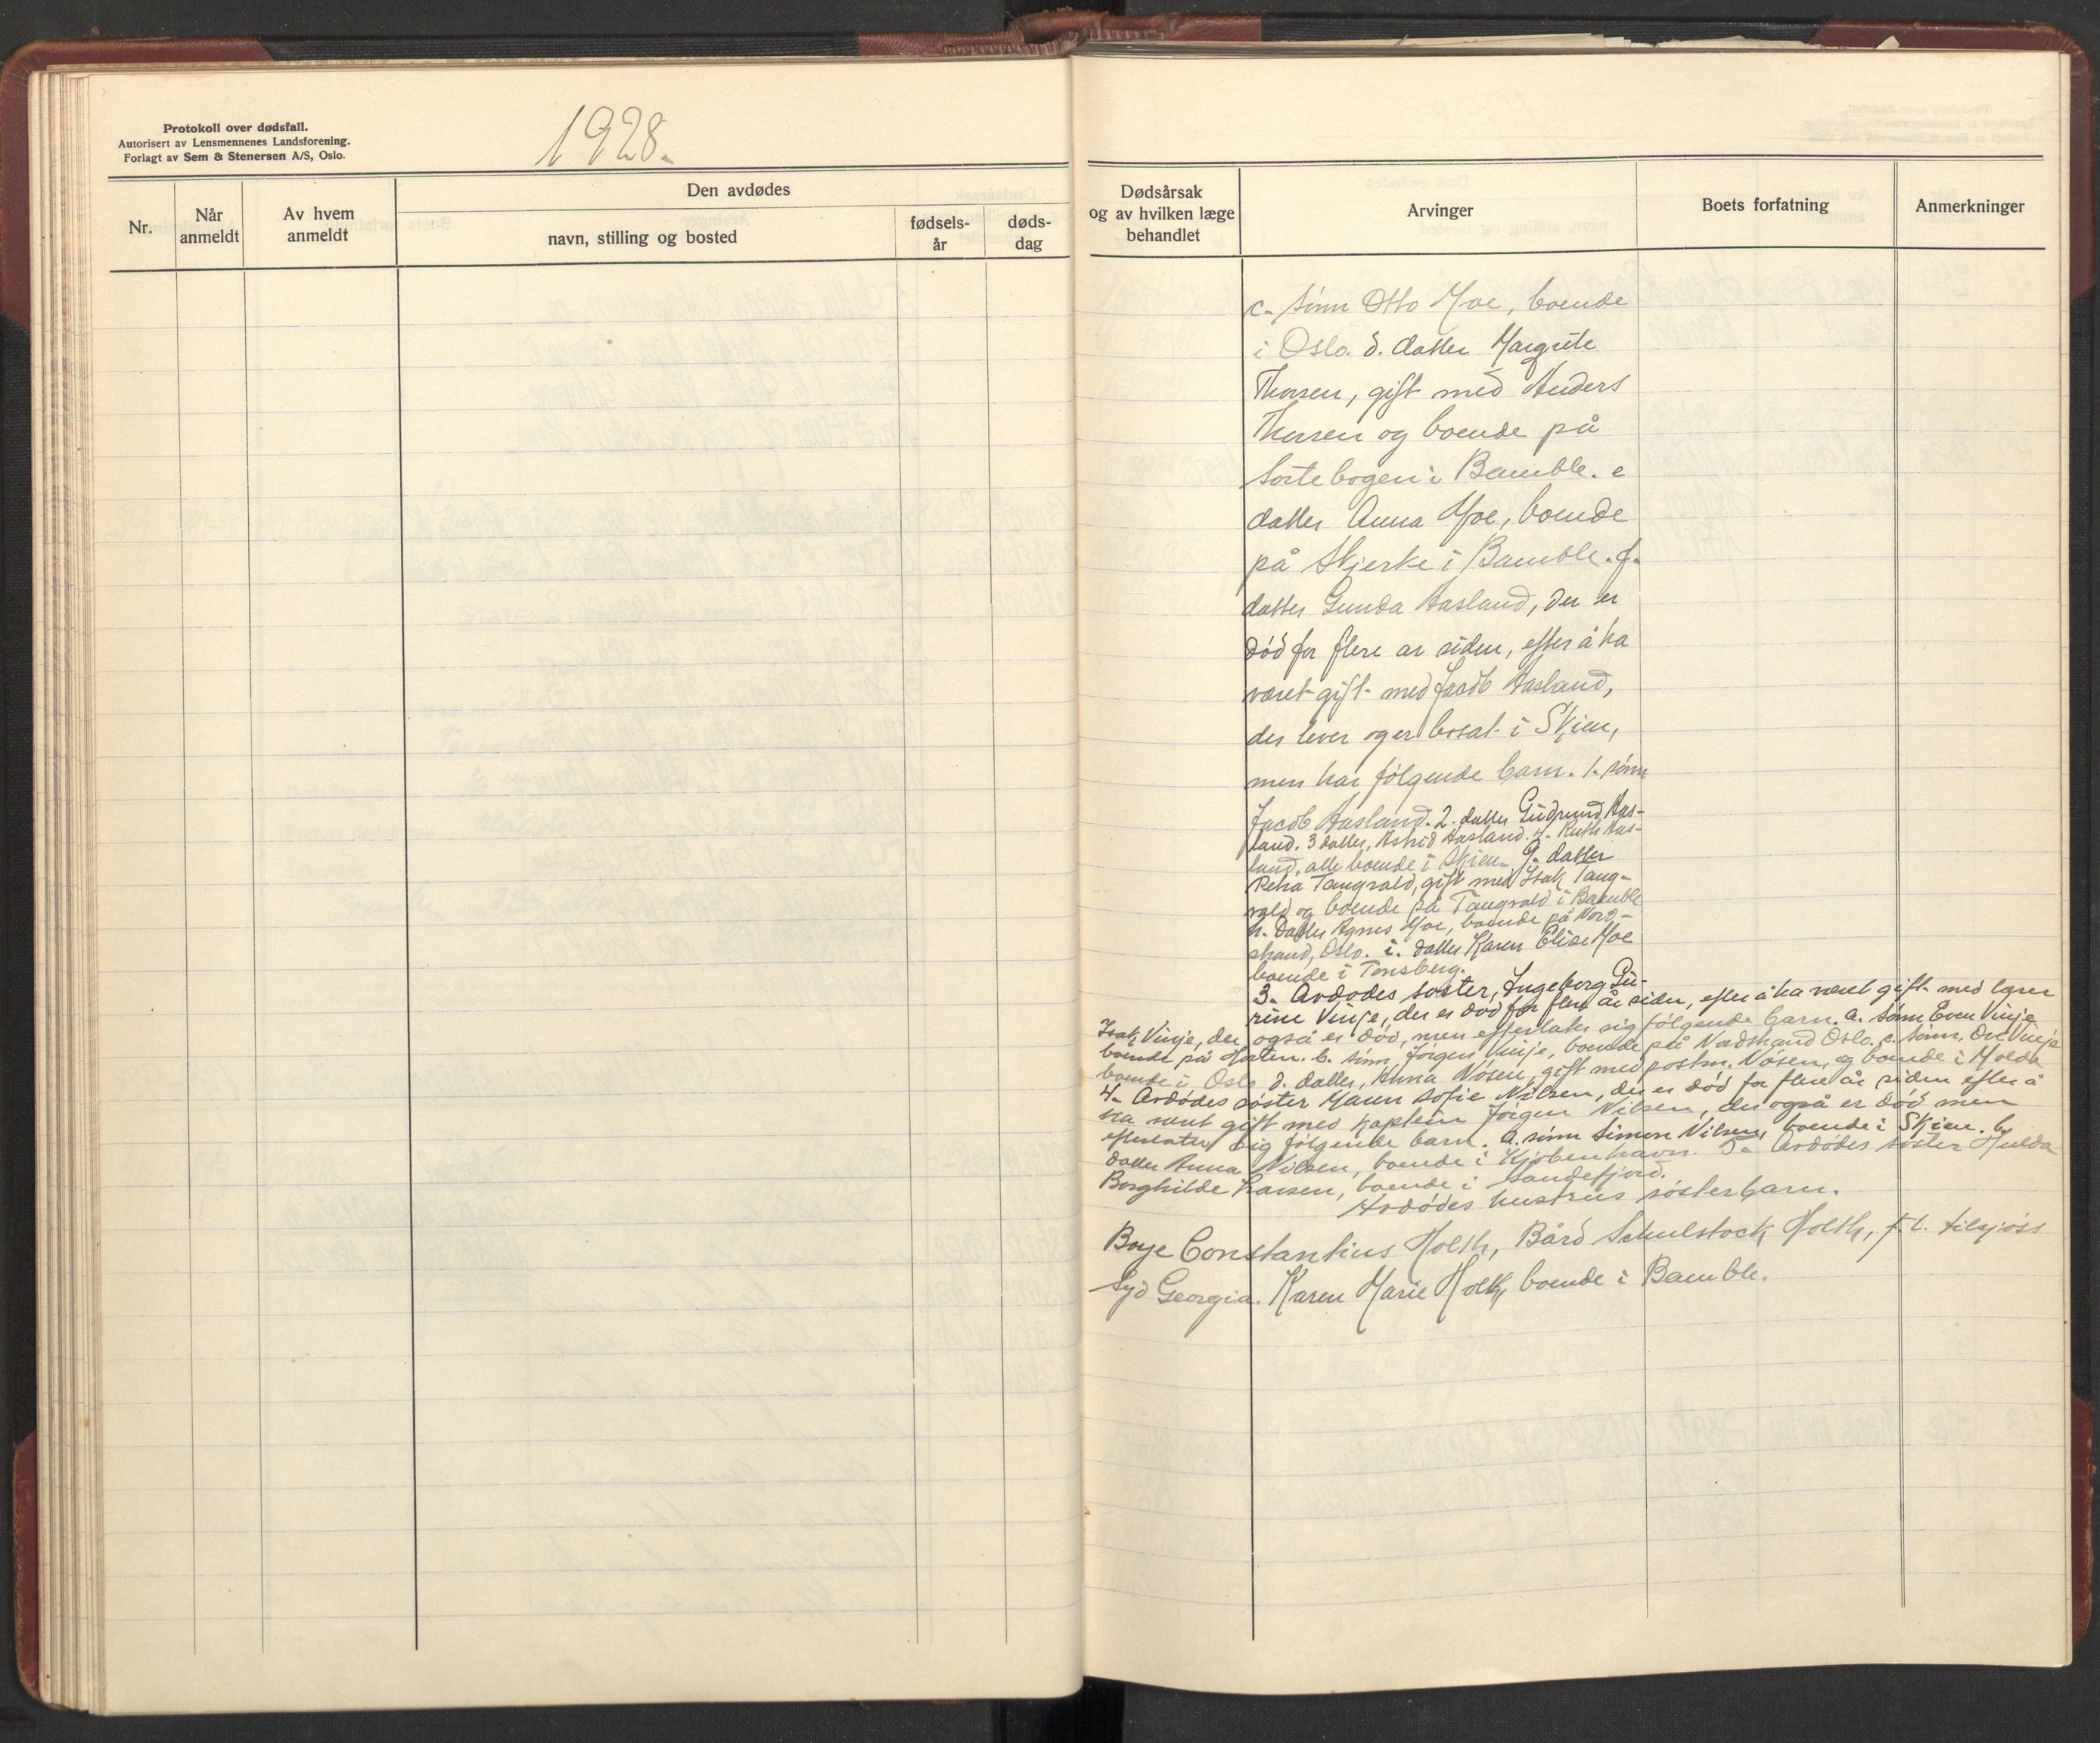 Protokoll over dødsfall.
Autorisert av Lensmennenes Landsforening.
Forlagt av Sem & Stenersen A/S, Oslo.
1928.
Nr.
Når anmeldt
Av hvem anmeldt
Den avdødes
navn, stilling og bosted
fødsels-år
døds-dag
Dødsårsak og av hvilken læge behandlet
Arvinger
Boets forfatning
Anmerkninger
c. sönn Otto Moe, boende
i Oslo. d. datter Margrete
Thorsen, gift med Anders
Thorsen og boende på
Sortebogen i Bamble. e
datter Anna Moe, boende
på Skjerke i Bamble. f.
datter Gunda Aasland, der er
död for flere år siden, efter å ha
været gift med Jacob Aasland,
der lever og er bosat i Skien,
men har fölgende barn. 1. sönn
Jacob Aasland. 2. datter Gudrund Aas-
land. 3 datter, Astrid Aasland. 4. Ruth Aas-
land, alle boende i Skien. g. datter
Petra Tangvald, gift med Isak Tang-
vald og boende på Tangvald i Bamble
h. Datter Agnes Moe, boende på Nord-
strand, Oslo. i. datter Karen Elise Moe
boende i Tönsberg.
3. Avdödes söster, Ingeborg Gu-
rine Vinje, der er död for flere år siden, efter å ha været gift med lærer
Isak Vinje, der også er död, men efterlater sig fölgende barn. a. sönn Even Vinje
boende på Horten. b. sönn, Jörgen Vinje, boende på Nordstrand Oslo. c. sönn, Ole Vinje
boende i Oslo d. datter, Anna Nösen, gift med postm. Nösen, og boende i Molde
4. Avdödes söster Maren Sofie Nilsen, der er död for flere år siden efter å
ha vært gift med kaptein Jörgen Nilsen, der også er död men
efterlater sig fölgende barn. a. sönn Simon Nilsen, boende i Skien. b.
datter Anna Nilsen, boende i Kjöbenhavn. 5. Avdödes söster Hulda
Borghilde Larsen, boende i Sandefjord.
Avdödes hustrus sösterbarn.
Boye Constantius Holth, Bård Schulstock Holth, f.t. tilsjöss
Syd Georgia. Karen Marie Holth, boende i Bamble.